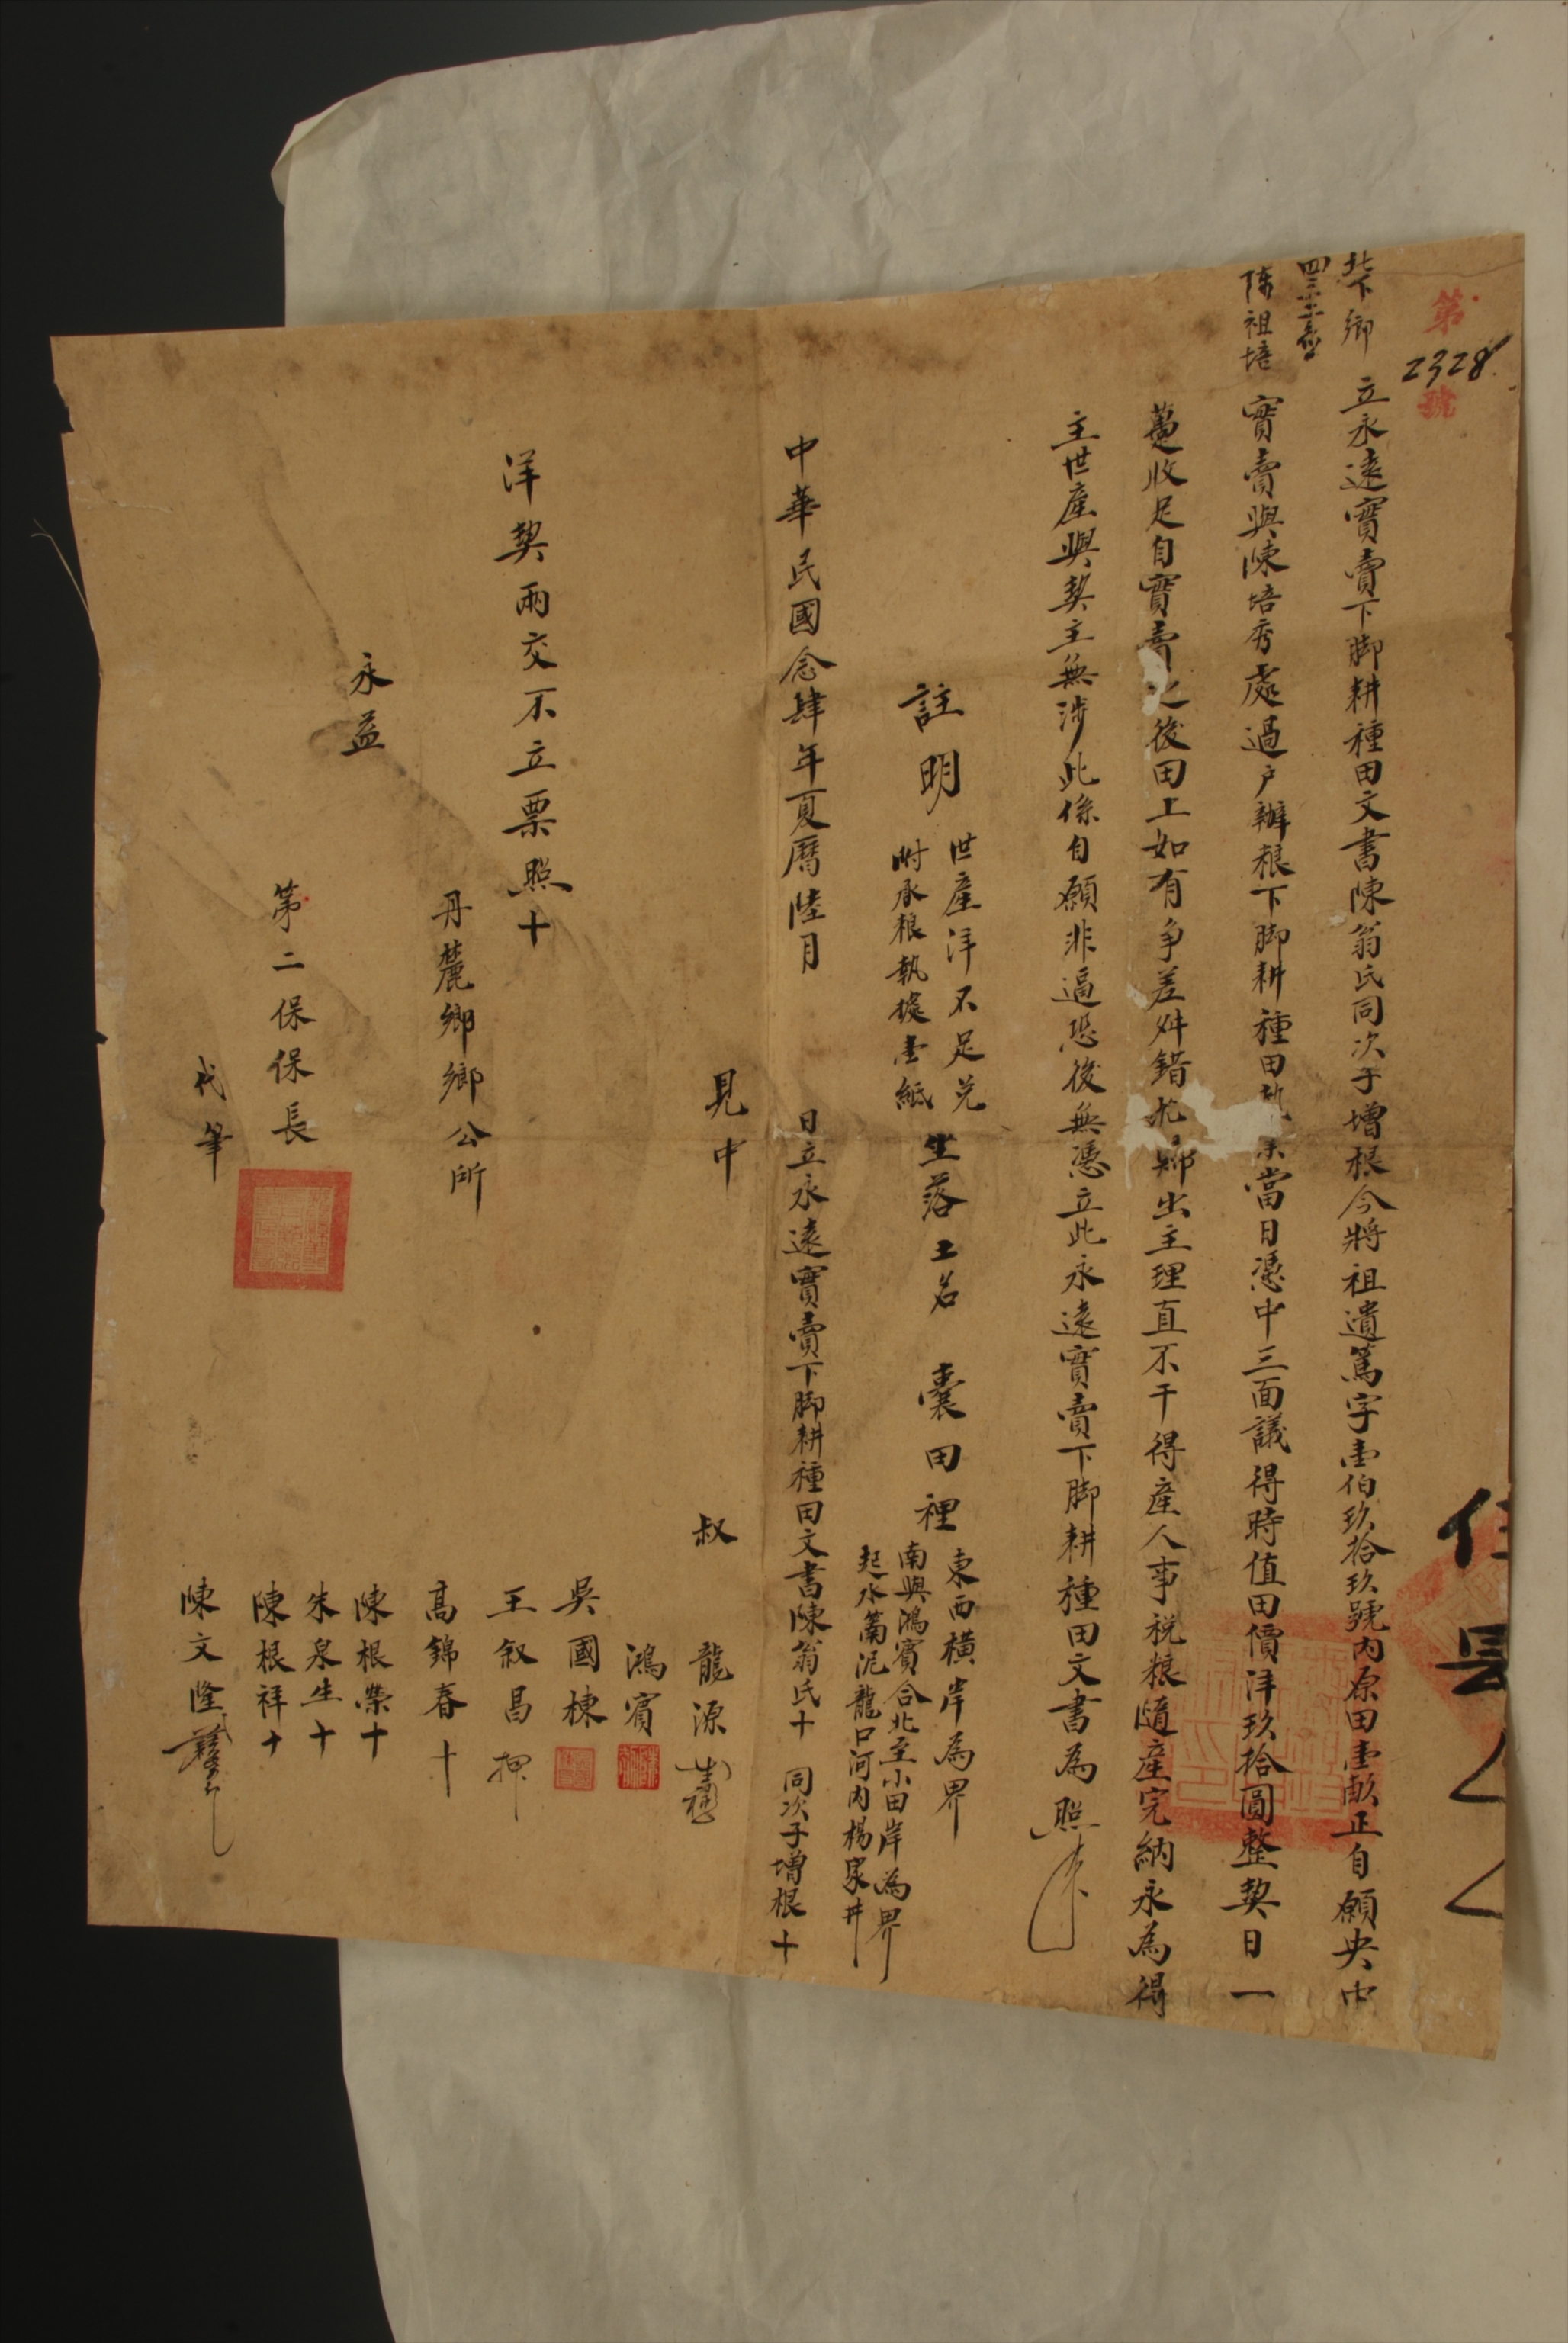 第2328號
北下鄉
陈祖培
立永遠實賣下脚耕種田文書陳翁氏同次子增根今將祖遺篤字壹伯玖拾玖號內原田壹畝正自願央中
實賣與陳培秀處過户辦粮下脚耕種田執業當日憑中三面議得時值田價洋玖拾圓整契日一
躉收足自實賣之後田上如有争差舛錯尤鄉出主理直不干得產人事税粮隨產完納永為得
主世產與契主無涉此係自願非逼恐後無憑立此永遠實賣下脚耕種田文書為照
註明
世產洋不足兑
附承粮執據壹紙
坐落土名 囊田裡
東西橫岸為界
南與鴻賓合北至小田岸為界
起水蕳泥龍口河內楊家井
中華民國念肆年夏曆陸月 日立永遠實賣下脚耕種田文書陳翁氏十 同次子增根十
見中 叔 龍源
鴻賓
吳國棟
洋契兩交不立票照十 王叙昌押
丹麓鄉鄉公所 高錦春十
永益 陳根榮十
朱泉生十
第二保保長 陳根祥十
代筆 陳文隆